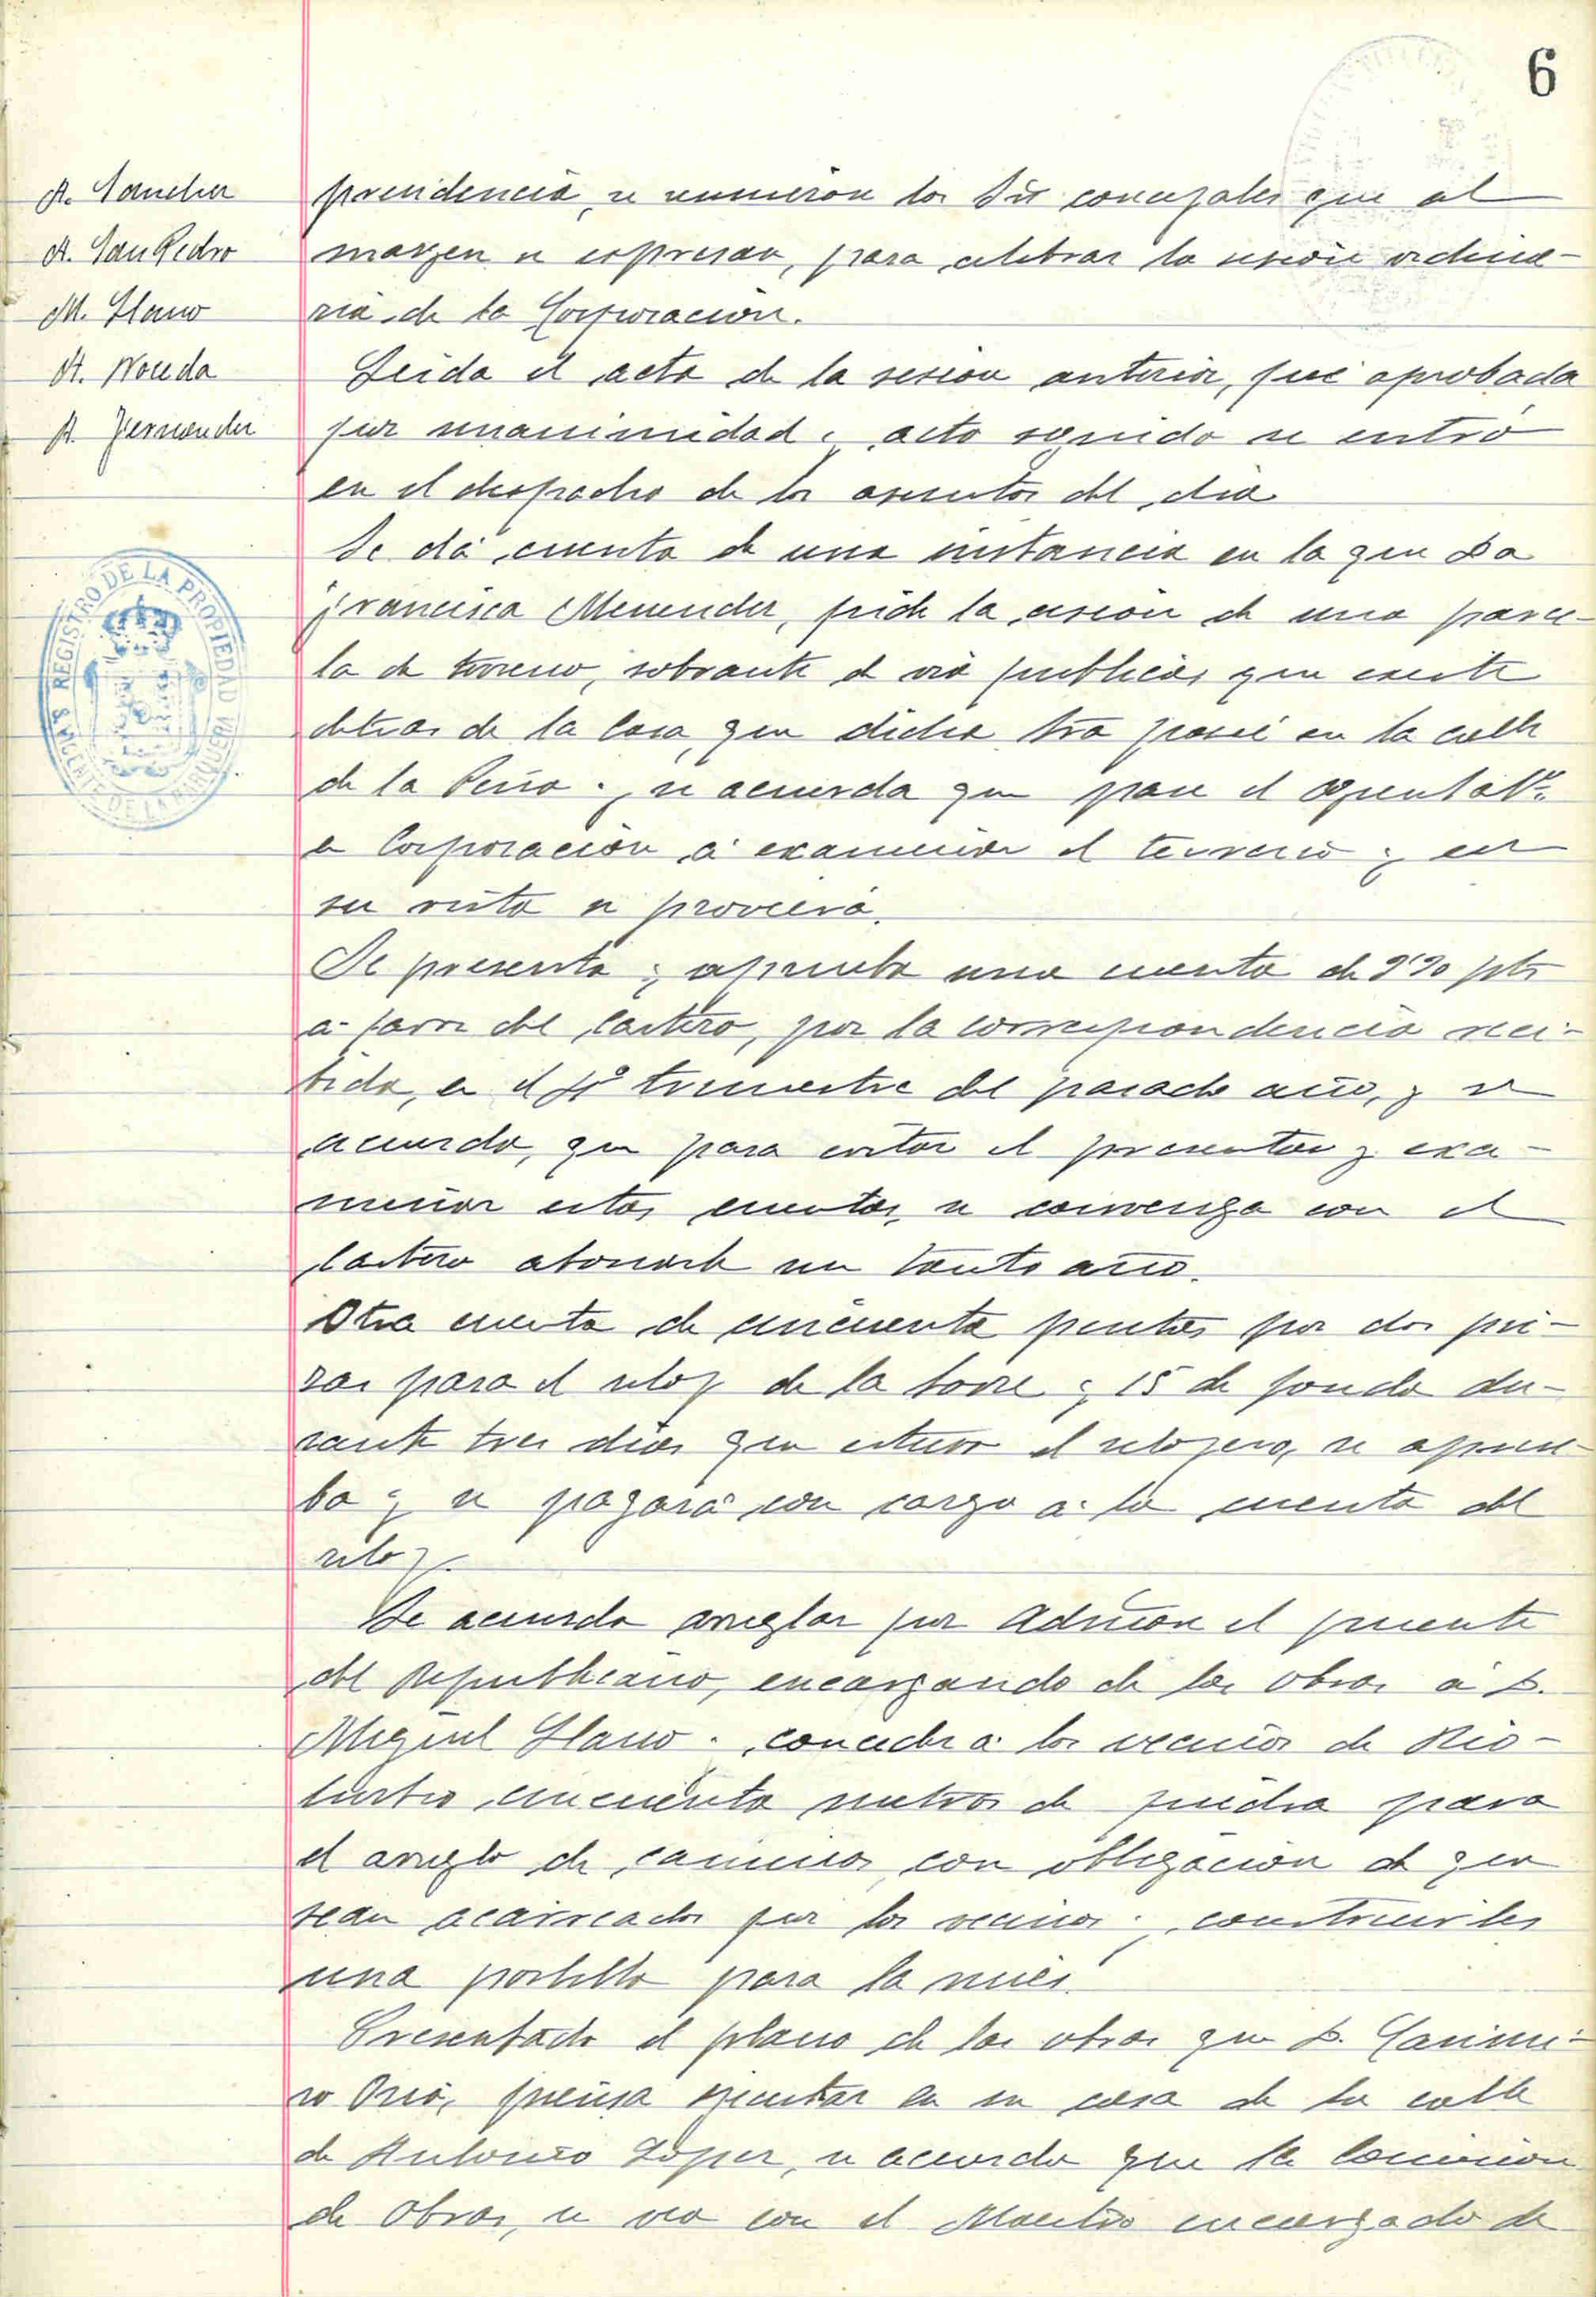 6
A. Sanchez
A. San Pedro
M. Llano
A. Noceda
A. Fernandez
REGISTRO DE LA PROPIEDAD
S. VICENTE DE LA BARQUERA
presidencia, se reunieron los Sres concejales que al
margen se espresan, para celebrar la sesión ordina-
ria de la Corporación.
Leida el acta de la sesion anterior, fué aprobada
por unanimidad y acto seguido se entró
en el despacho de los asuntos del dia
Se dá cuenta de una instancia en la que Da
Francisca Menendez, pide la cesion de una parce-
la de terreno, sobrante de via publica, que existe
detras de la Casa que dicha Sra posee en la calle
de la Peña y se acuerda que pase el Ayuntatº
en Corporación á examinar el terreno y en
su vista se proveerá.
Se presenta y aprueba una cuenta de pts
a favor del Cartero, por la correspondencia reci-
bida, en el 4º trimestre del pasado año, y se
acuerda, que para evitar el presentar y exa-
minar estas cuentas, se convenga con el
Cartero abonarle un tanto año.
Otra cuenta de cincuenta pesetas por dos pie-
zas para el reloj de la torre y 15 de fonda du-
rante tres dias que estuvo el relojero, se aprue-
ba y se pagará con cargo a la cuenta del
reloj.
Se acuerda arreglar por Admon el puente
del Republicano, encargando de las obras a D.
Miguel Llano y conceder a los vecinos de Rio-
turbio cincuenta metros de piedra para
el arreglo de caminos, con obligacion de que
sean acarreados por los vecinos y construirles
una portilla para la mies.
Presentado el plano de las obras que D. Casimi-
ro piensa ejecutar en su casa de la calle
de Antonio Lopez, se acuerda que la Comision
de Obras, se vea con el Maestro encargado de